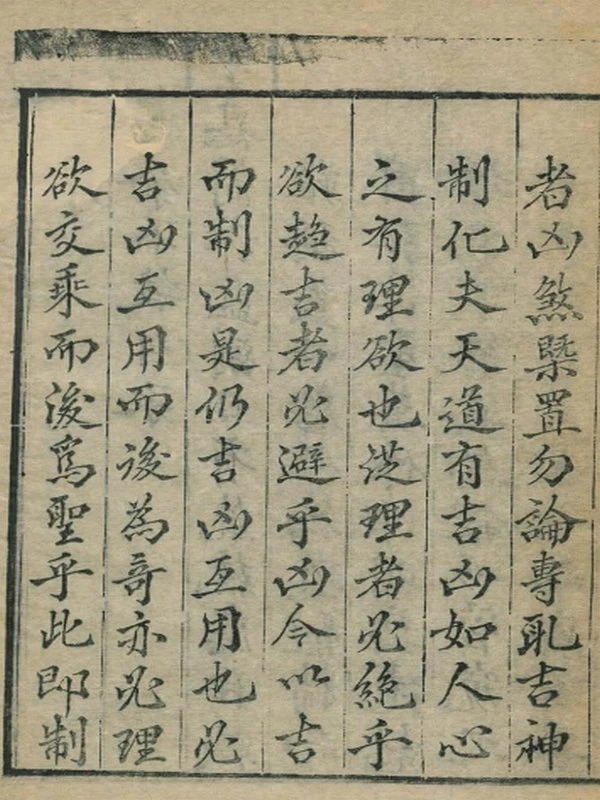 者凶煞槩置勿論專取吉神
制化夫天道有吉凶如人心
之有理欲也從理者必絶乎
欲趋吉者必避乎凶今以吉
而制凶是仍吉凶互用也必
吉凶互用而後為奇亦必理
欲交乘而後爲聖乎此即制